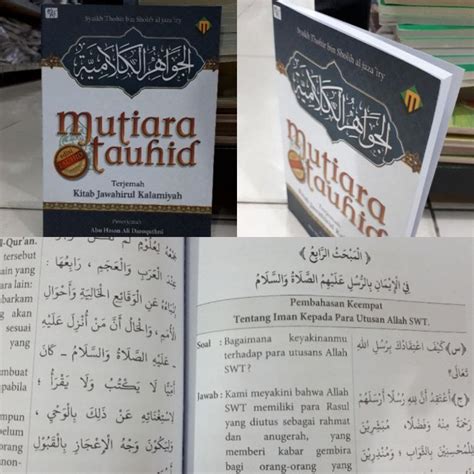 Syaikh Thohir bin Sholih al-Jaza'iry
الجواهر الكلامية
mutiara
tauhid
Terjemah
Kitab Jawahirul Kalamiyah
Penerjemah
Abu Hasan Ali Dausuqathni
Syaikh Thohir bin Sholih al-Jaza'iry
الجواهر الكلامية
mutiara
tauhid
l-Qur'an.
tersebut
ain yang
ara lain:
mbarkam
g akan
sesuai
yang
embuat
apabila
mpun
sebut
non-
الْعَرَبِ وَالْعَجَمِ ، رَابِعُهَا :
عَنِ الْوَقَائِعِ الْخَالِيَةِ وَأَحْوَالِ
الْأُمَمِ، وَالْحَالُ أَنَّ مَنْ أُنْزِلَ عَلَيْهِ
- عَلَيْهِ الصَّلَاةُ وَالسَّلَامُ - كَانَ
أُمِّيًّا لَا يَكْتُبُ وَلَا يَقْرَأُ ؛
لِاسْتِغْنَائِهِ عَنْ ذَلِكَ بِالْوَحْيِ ،
وَلِيَكُوْنَ وَجْهُ الْإِعْجَازِ بِالْقَبُوْلِ
﴿ الْمَبْحَثُ الرَّابِعُ ﴾
فِي الْإِيْمَانِ بِالرُّسُلِ عَلَيْهِمُ الصَّلَاةُ وَالسَّلَامُ
Pembahasan Keempat
Tentang Iman Kepada Para Utusan Allah SWT.
Soal : Bagaimana keyakinanmu
terhadap para utusans Allah
SWT ?
﴿س﴾ كَيْفَ اعْتِقَادُكَ بِرُسُلِ اللهِ
تَعَالَى؟
Jawab : Kami meyakini bahwa Allah
SWT memiliki para Rasul
yang diutus sebagai rahmat
dan anugerah, yang
memberi kabar gembira
bagi orang-orang yang
﴿ج﴾ أَعْتَقِدُ أَنَّ لِلَّهِ رُسُلًا أَرْسَلَهُمْ
رَحْمَةً مِنْهُ وَفَضْلًا، مُبَشِّرِيْنَ
لِلْمُحْسِنِ بِالثَّوَابِ ، وَمُنْذِرِيْنَ